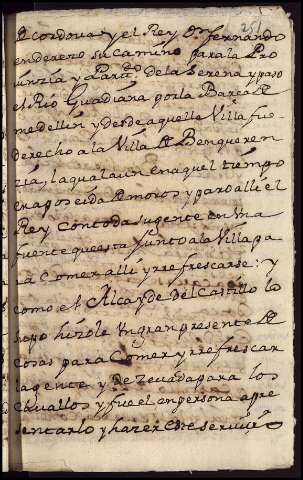 251
de Cordova y el Rey Dn fernando
enderezo su camino para la Pro
uinzia y Partido de la Serena y paso
el Rio Guadiana por la Barca de
medellin y desde aquella Villa fue
derecho a la Villa de Benqueren
zia, la qual aun en aquel tiempo
era poseida de moros y paro alli el
Rey con toda su gente en una
fuente que esta junto a la Villa pa
ra comer alli y rrefrescarse: y
como el Alcayde del Castillo lo
supo hizole un gran presente de
cosas para comer y rrefrescar
la gente y de zevada para los
cavallos y fue el en persona apre
sentarlo y hazer este servizio